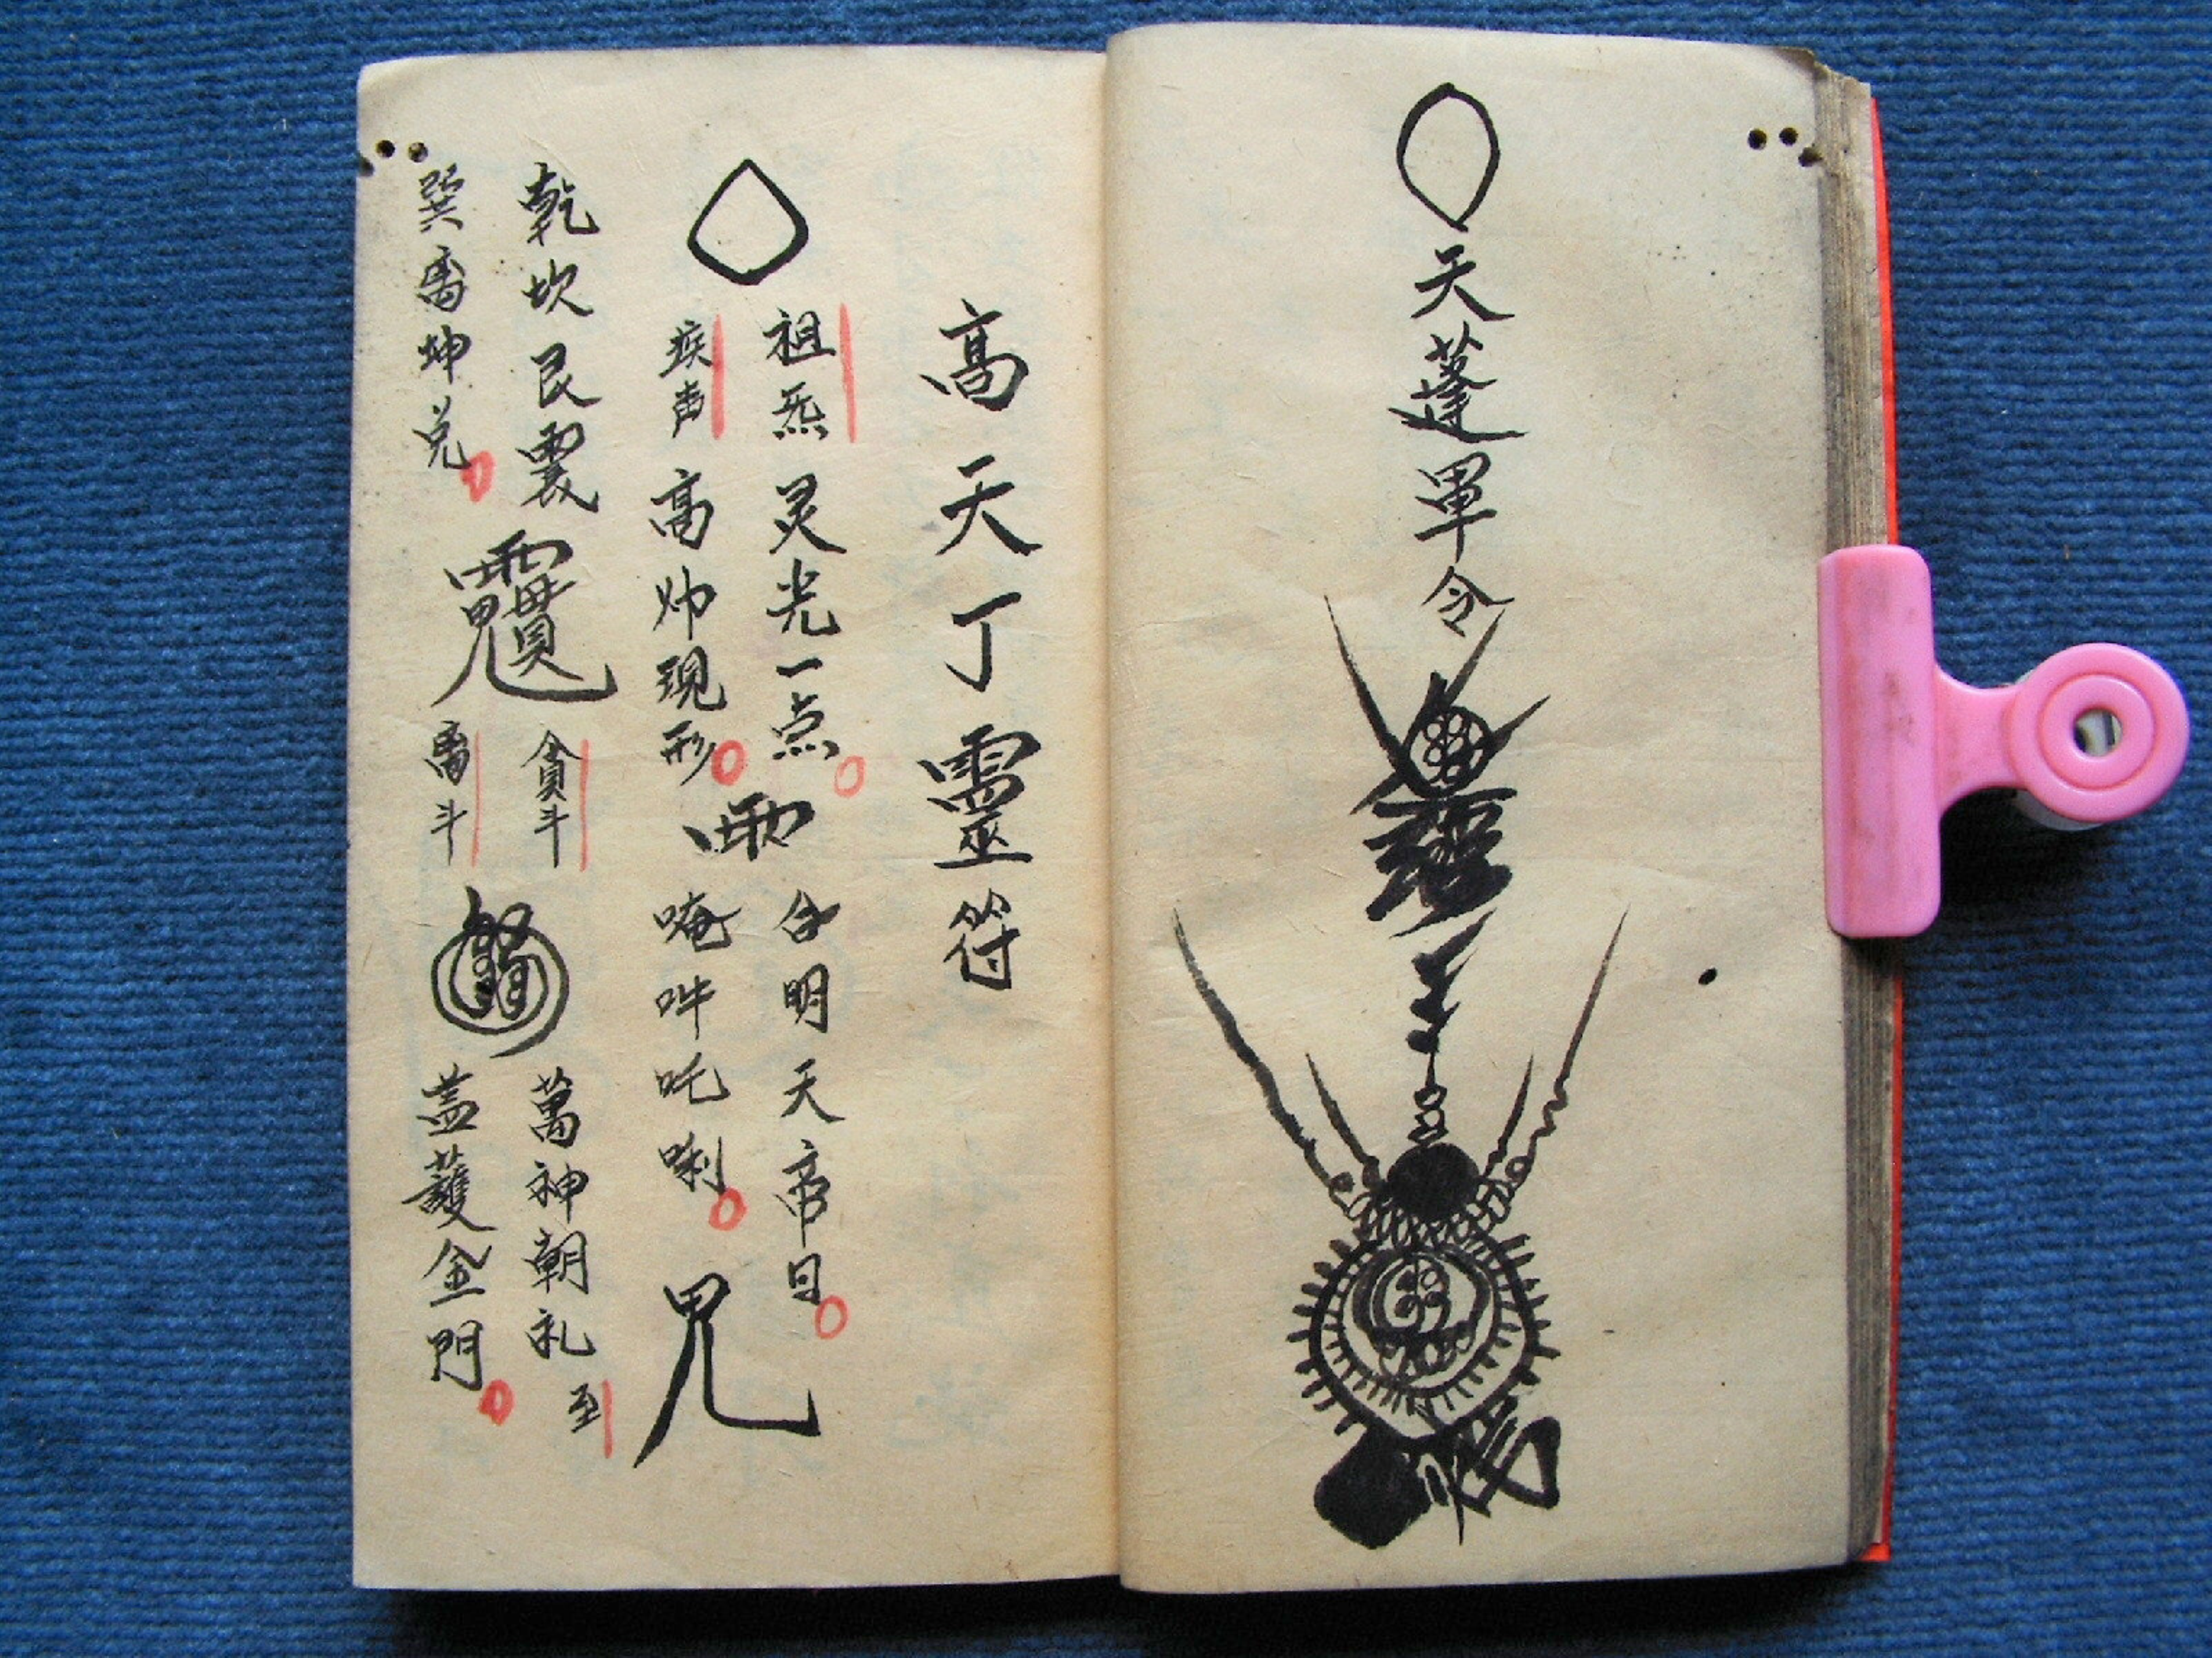 天蓬軍令
高天丁靈符
祖炁
灵光一点
疾声
高帅現形
合明天帝日
唵吽吒唎
乾坎艮震
巽离坤兑
貪斗
离斗
萬神朝礼
至
蓋護金門